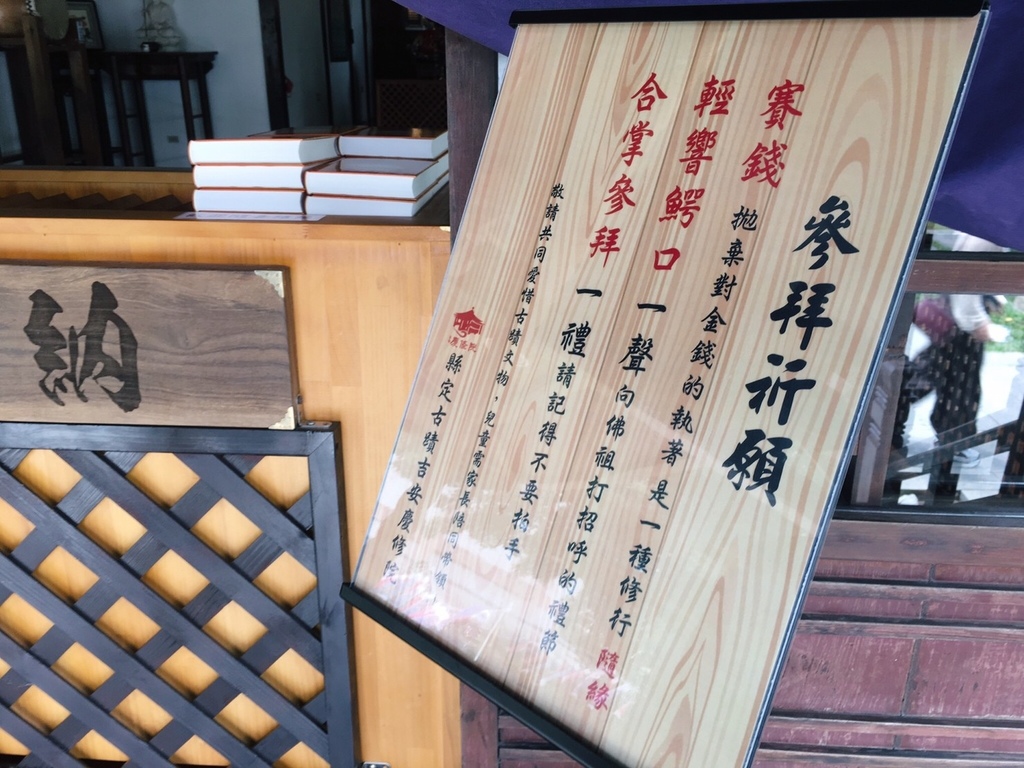 參拜祈願
賽錢 拋棄對金錢的執著是一種修行 隨緣
輕響鰐口 一聲向佛祖打招呼的禮節
合掌參拜 一禮請記得不要拍手
敬請共同愛惜古蹟文物,兒童需家長陪同帶領
慶修院
縣定古蹟吉安慶修院
納